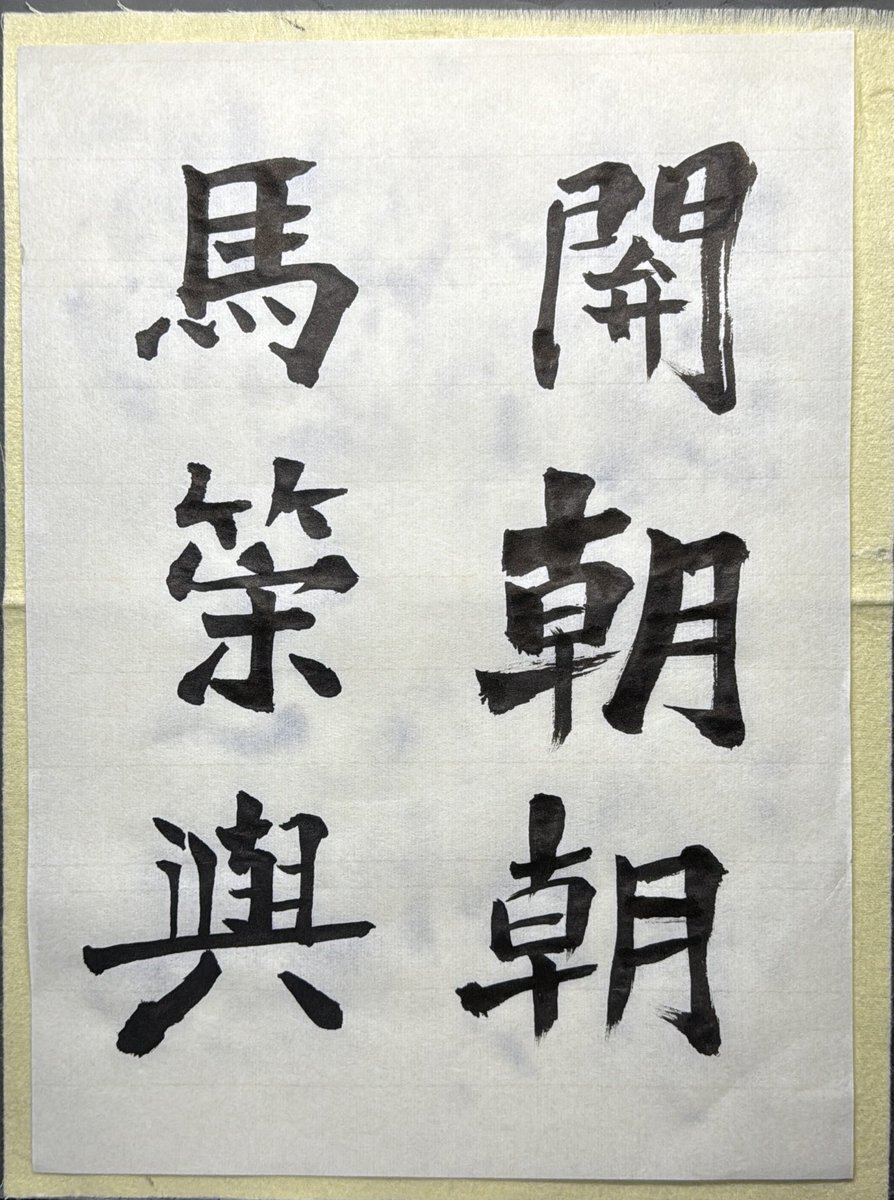 開朝朝
馬策與